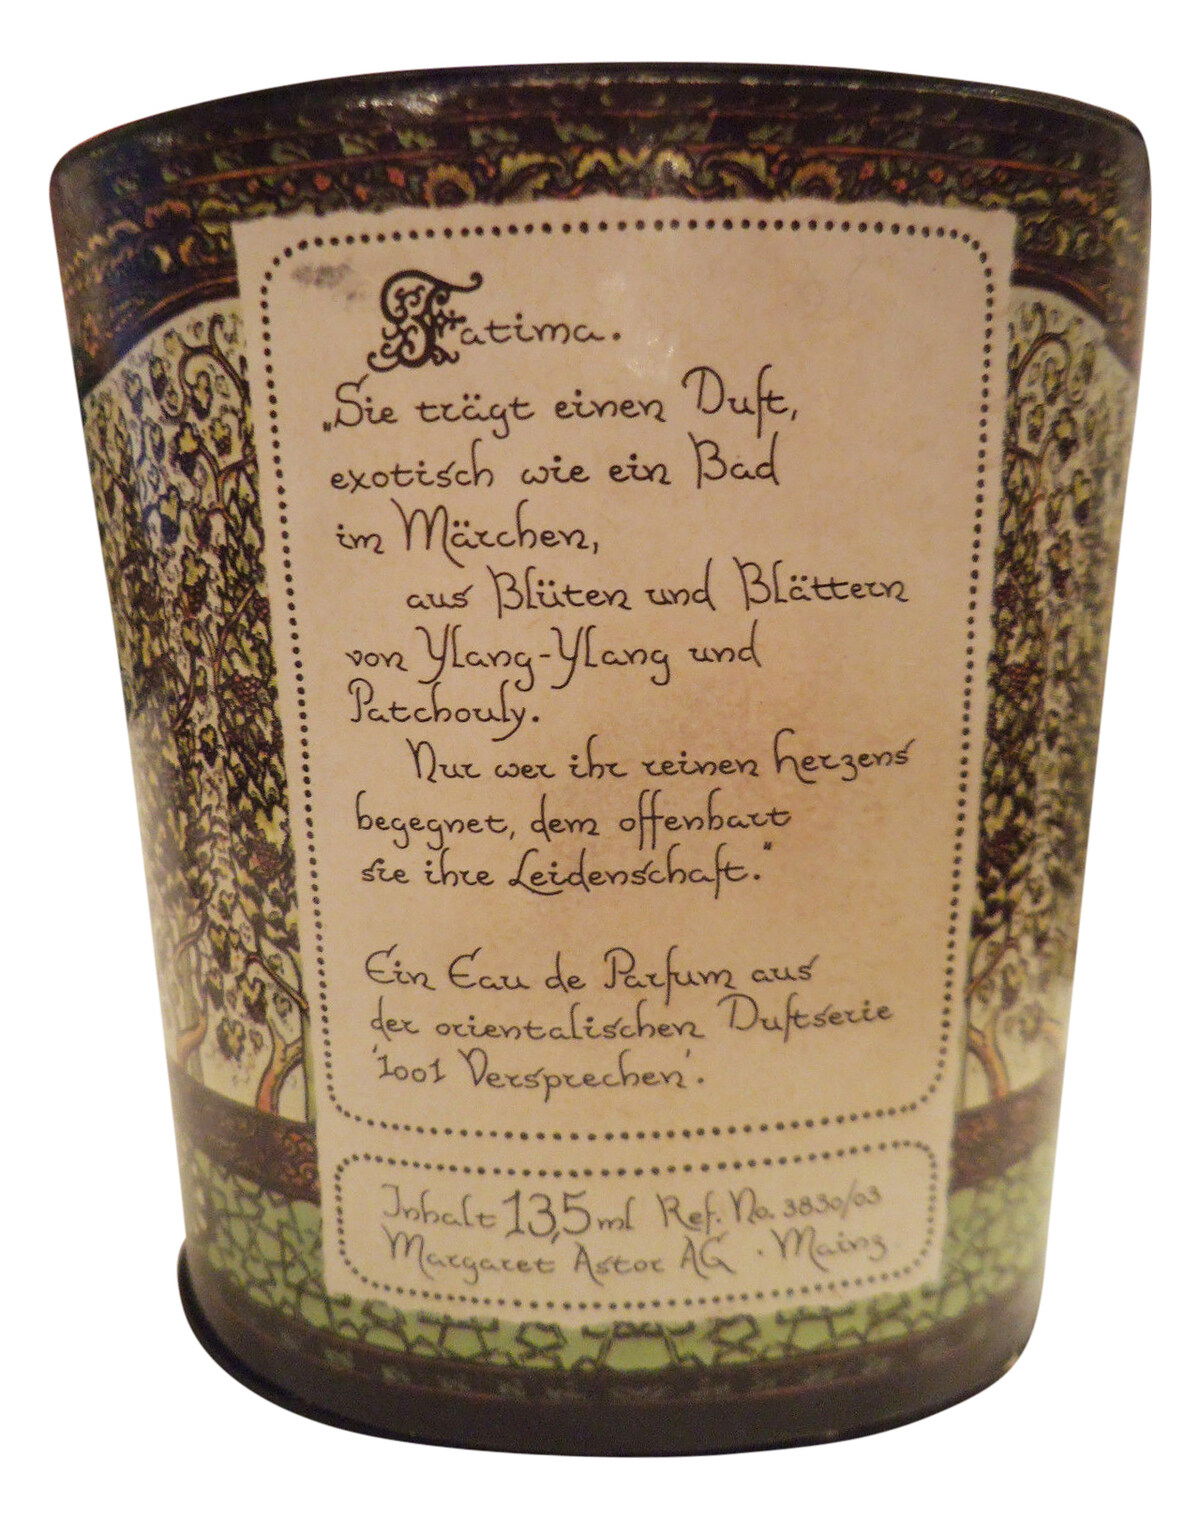 Fatima.
„Sie trägt einen Duft,
exotisch wie ein Bad
im Märchen,
aus Blüten und Blättern
von Ylang-Ylang und
Patchouly.
Nur wer ihr reinen Herzens
begegnet, dem offenbart
sie ihre Leidenschaft."
Ein Eau de Parfum aus
der orientalischen Duftserie
'1001 Versprechen'.
Inhalt 13,5 ml Ref. No. 3830/03
Margaret Astor AG · Mainz